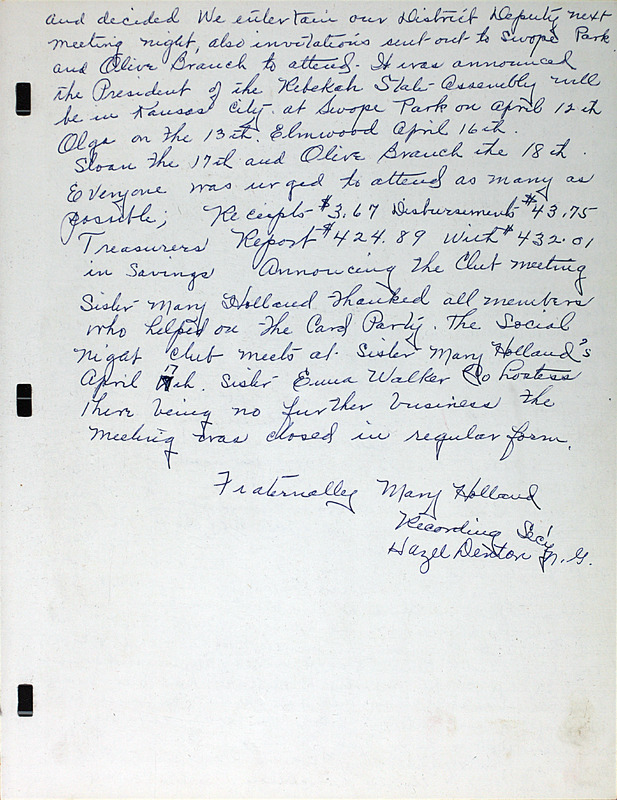 and decided We entertain our District Deputy next
meeting night, also invitations sent out to Swope Park
and Olive Branch to attend. It was announced
the President of the Rebekah State Assembly will
be in Kansas City. at Swope Park on April 12th
Olga on the 13th. Elmwood April 16th.
Sloan the 17th and Olive Branch the 18th.
Everyone was urged to attend as many as
possible; Reciepts $3.67 Disbursements $43.75
Treasurers Report $424.89 with $432.01
in Savings Announcing the Club meeting
Sister Mary Holland thanked all members
who helped on the Card Party. The Social
Night Club meets at Sister Mary Holland's
April 17th. Sister Emma Walker Co hostess
There being no further business the
meeting was closed in regular form.
Fraternally Mary Holland
Recording Sec'y
Hazel Denton N.G.